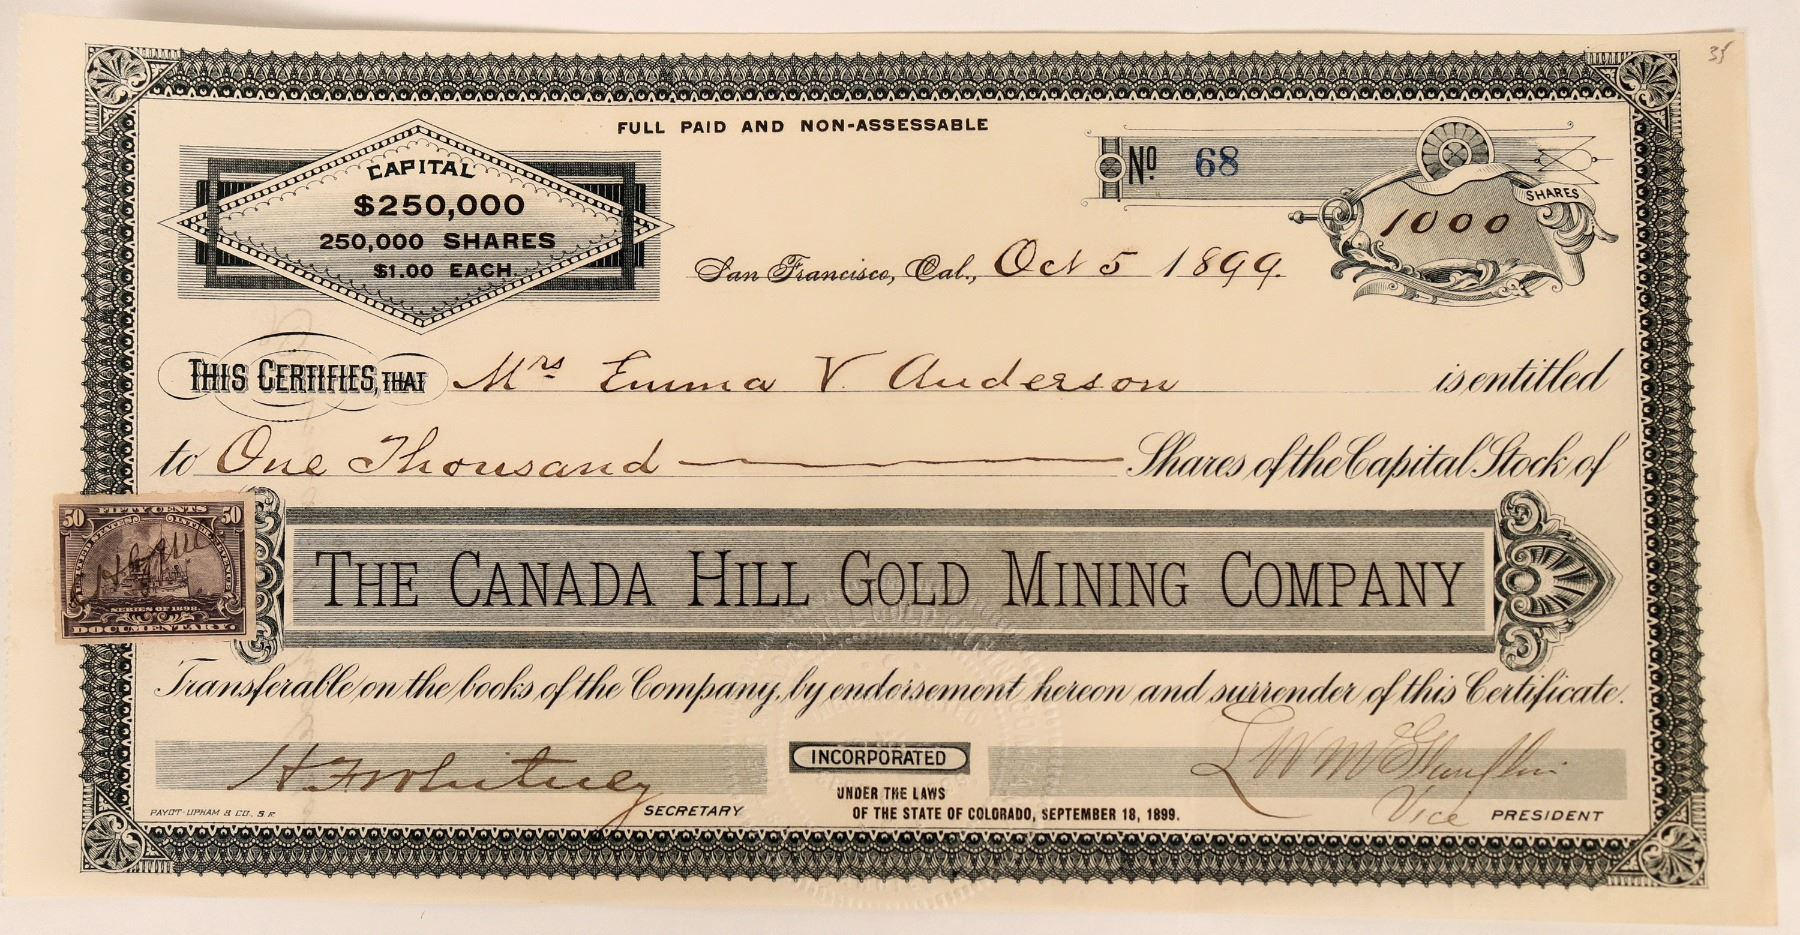 35
FULL PAID AND NON-ASSESSABLE
CAPITAL
$250,000
250,000 SHARES
$1.00 EACH.
No. 68
SHARES
1000
San Francisco, Cal., Oct 5 1899.
THIS CERTIFIES, THAT Mrs Emma V. Anderson is entitled
to One Thousand Shares of the Capital Stock of
50 FIFTY CENTS 50
UNITED STATES INTER. REVENUE
SERIES OF 1898.
DOCUMENTARY.
THE CANADA HILL GOLD MINING COMPANY
Transferable on the books of the Company, by endorsement hereon and surrender of this Certificate.
H F Whitney SECRETARY
INCORPORATED
UNDER THE LAWS
OF THE STATE OF COLORADO, SEPTEMBER 18, 1899.
Vice PRESIDENT
PAYOT-UPHAM & CO. S F.